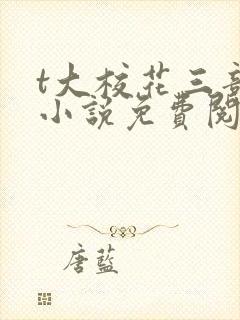 t大校花三部
小說免費閱
唐藍